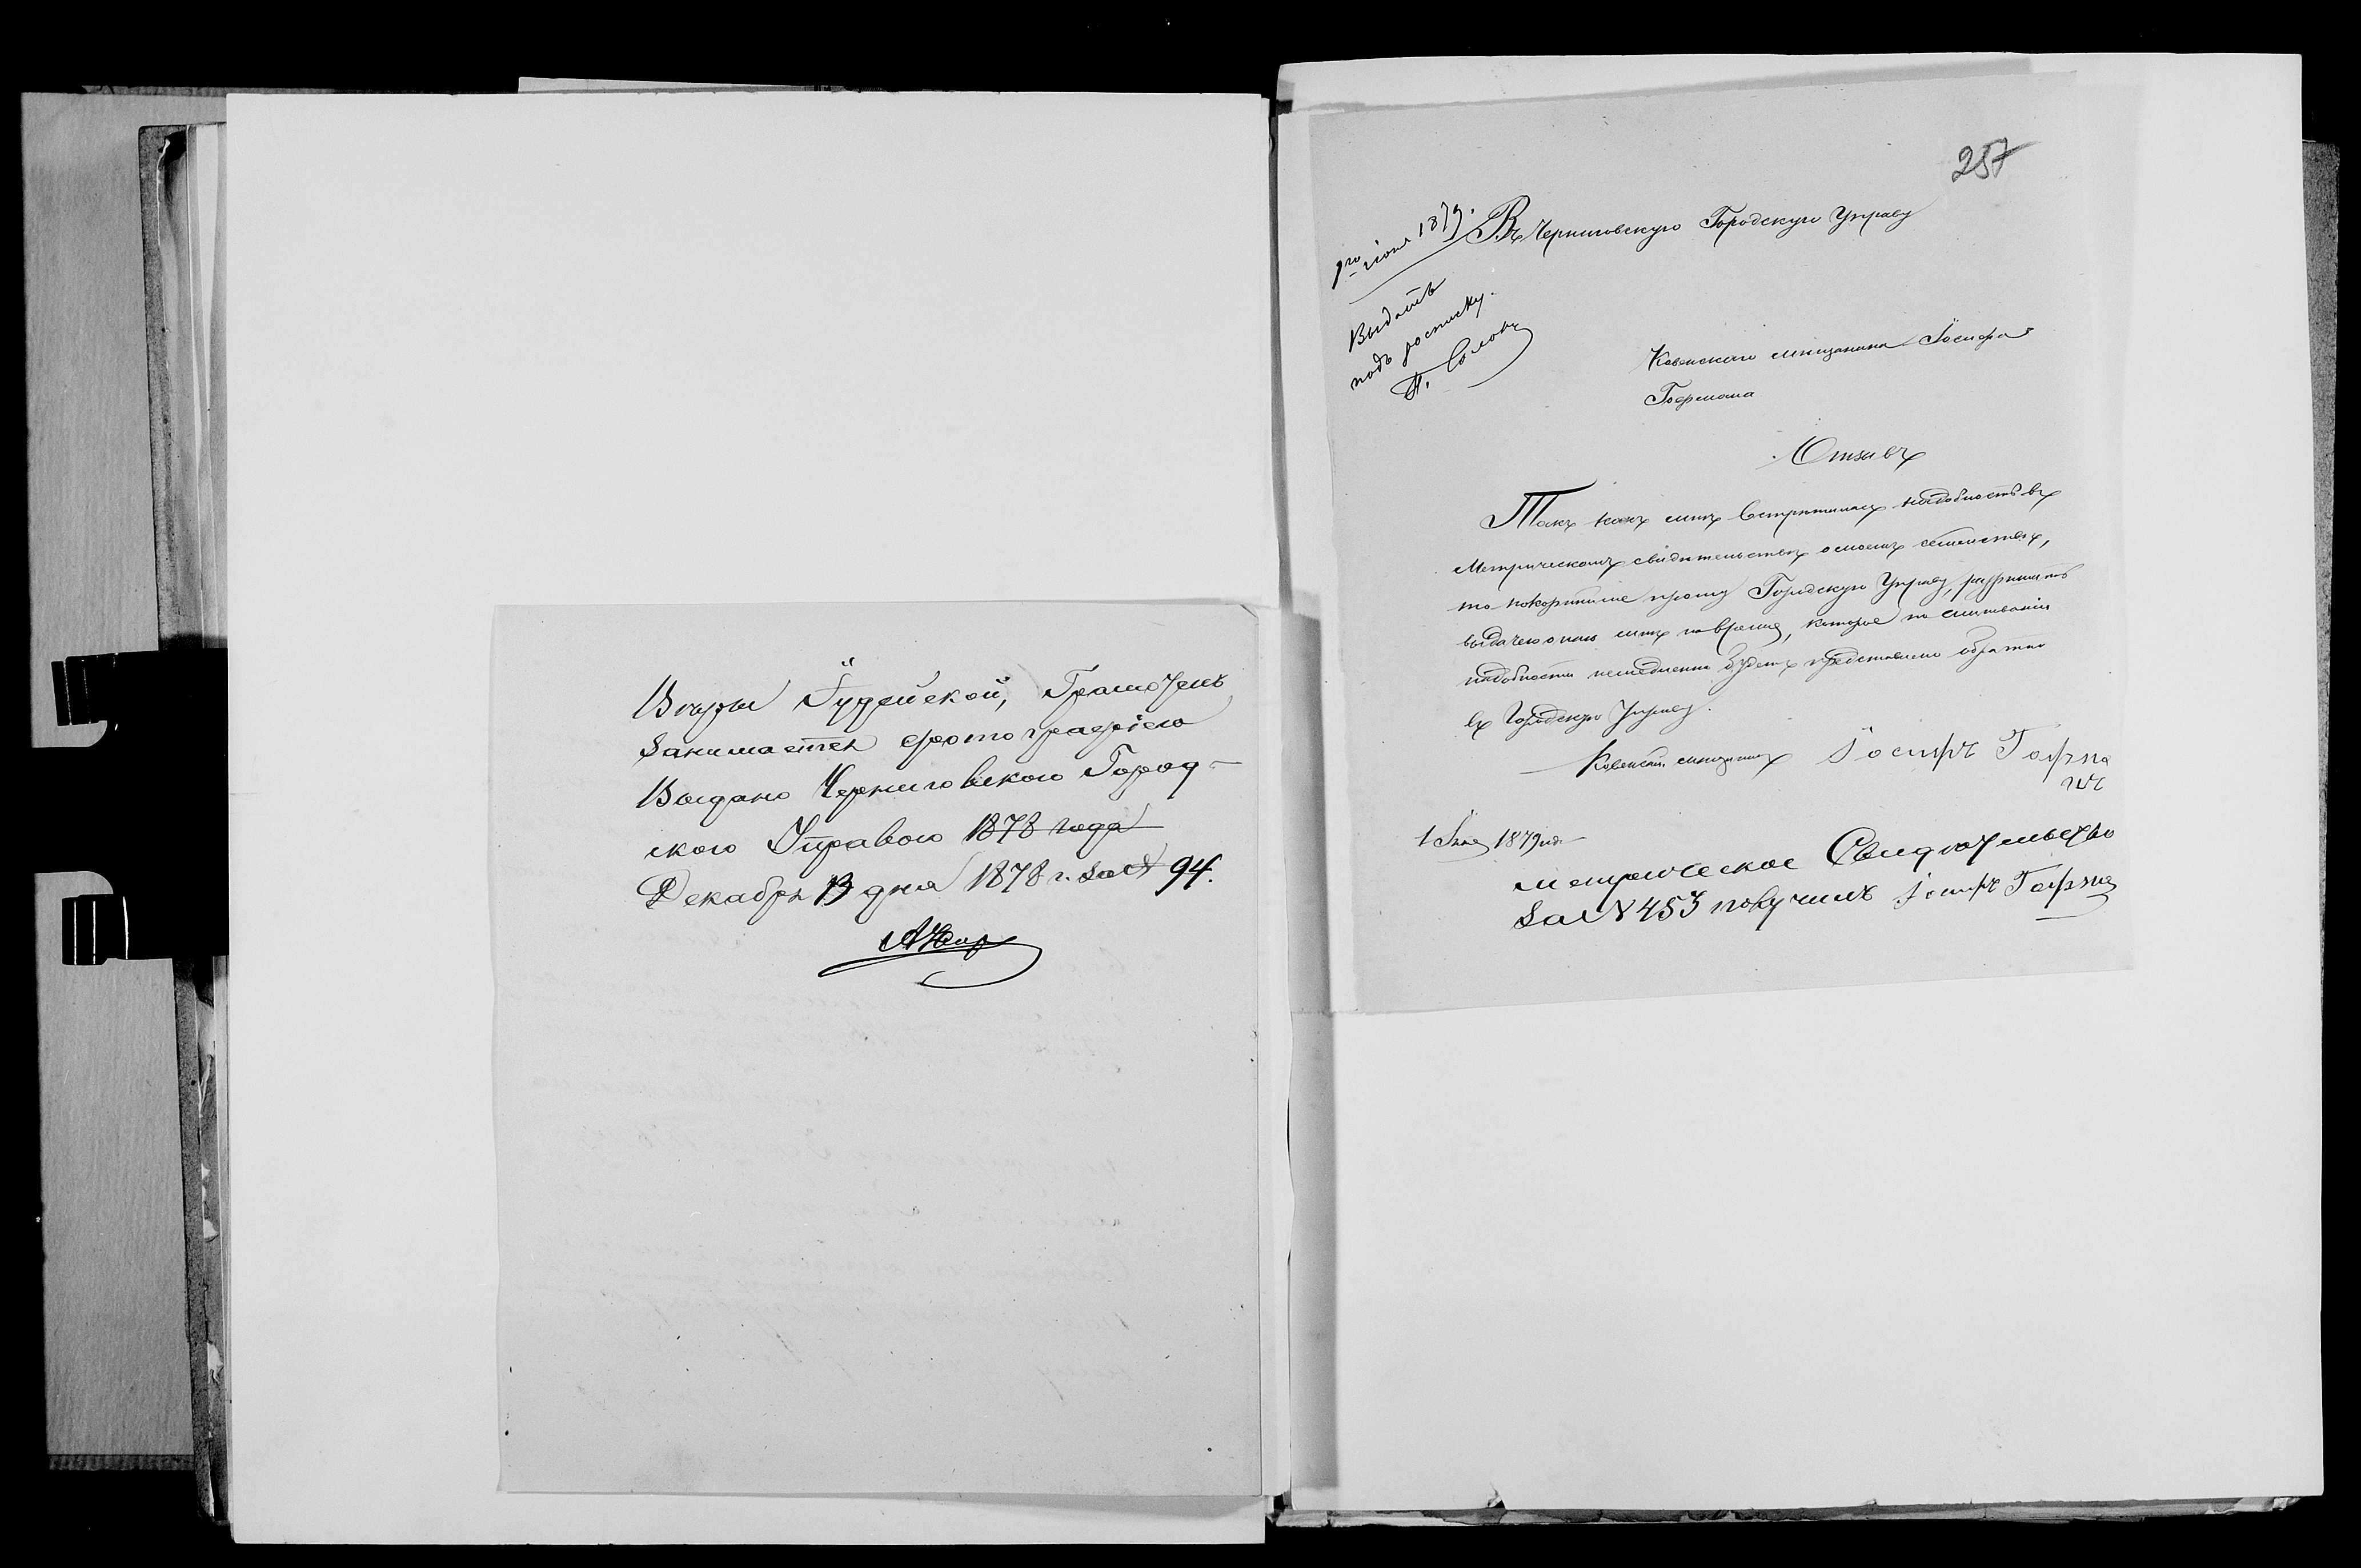 Вѣры Іудейской, Грамотенъ
Занимается фотографіею
Выдано Черниговскою Город-
скою Управою 1878 года
Декабря 13 дня 1878 г. за № 94.
257
9го іюня 1879.
Выдать
подъ росписку.
Въ Черниговскую Городскую Управу
Ковенскаго мѣщанина Іосифа
Гофмана
Отзывъ
Такъ какъ мнѣ встрѣтилась надобность въ
метрическомъ свидѣтельствѣ о моемъ семействѣ,
то покорнѣйше прошу Городскую Управу, разрѣшить
выдачею мнѣ на время, которое по минованіи
надобности немедленно будетъ представлено обратно
въ Городскую Управу.
Ковенскій мѣщанинъ Іосифъ Гофма
нъ
1879 года
метрическое Свидѣтельство
за № 453 получилъ Іосифъ Гофман